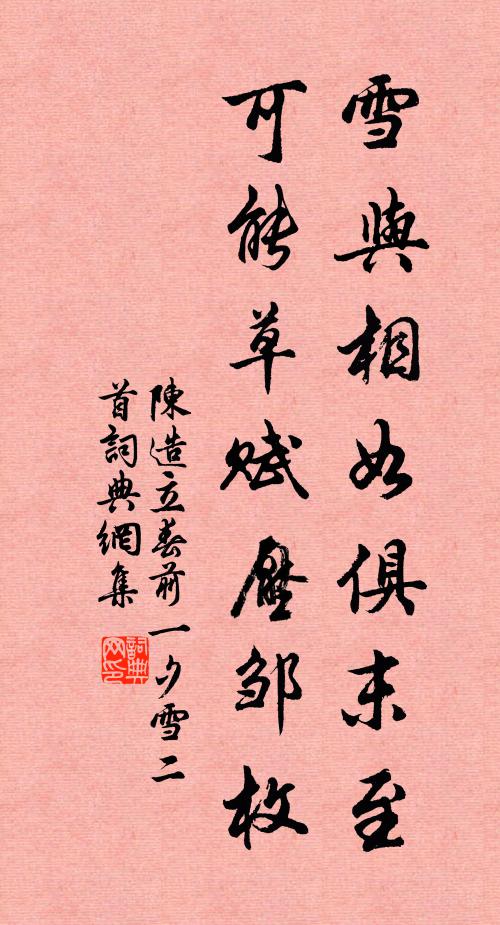 雪與相如俱末至
可能草賦壓邹枚
陳造立春前一夕雪二
首詞典網集
詞典
网印